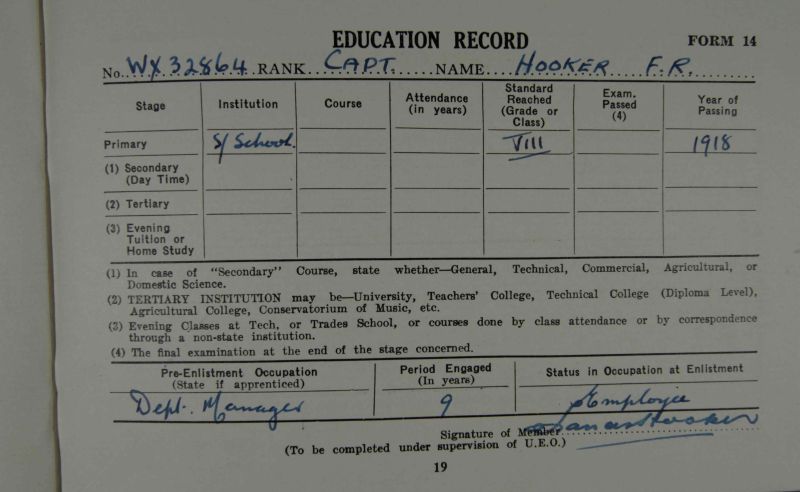 EDUCATION RECORD FORM 14
No. WX 32864 RANK CAPT. NAME HOOKER F.R.
Stage Institution Course Attendance (in years) Standard Reached (Grade or Class) Exam. Passed (4) Year of Passing
Primary S/ School. VIII 1918
(1) Secondary (Day Time)
(2) Tertiary
(3) Evening Tuition or Home Study
(1) In case of "Secondary" Course, state whether—General, Technical, Commercial, Agricultural, or
Domestic Science.
(2) TERTIARY INSTITUTION may be—University, Teachers' College, Technical College (Diploma Level),
Agricultural College, Conservatorium of Music, etc.
(3) Evening Classes at Tech, or Trades School, or courses done by class attendance or by correspondence
through a non-state institution.
(4) The final examination at the end of the stage concerned.
Pre-Enlistment Occupation (State if apprenticed) Period Engaged (In years) Status in Occupation at Enlistment
Dept. Manager 9 Employee
Signature of Member Hooker
(To be completed under supervision of U.E.O.)
19